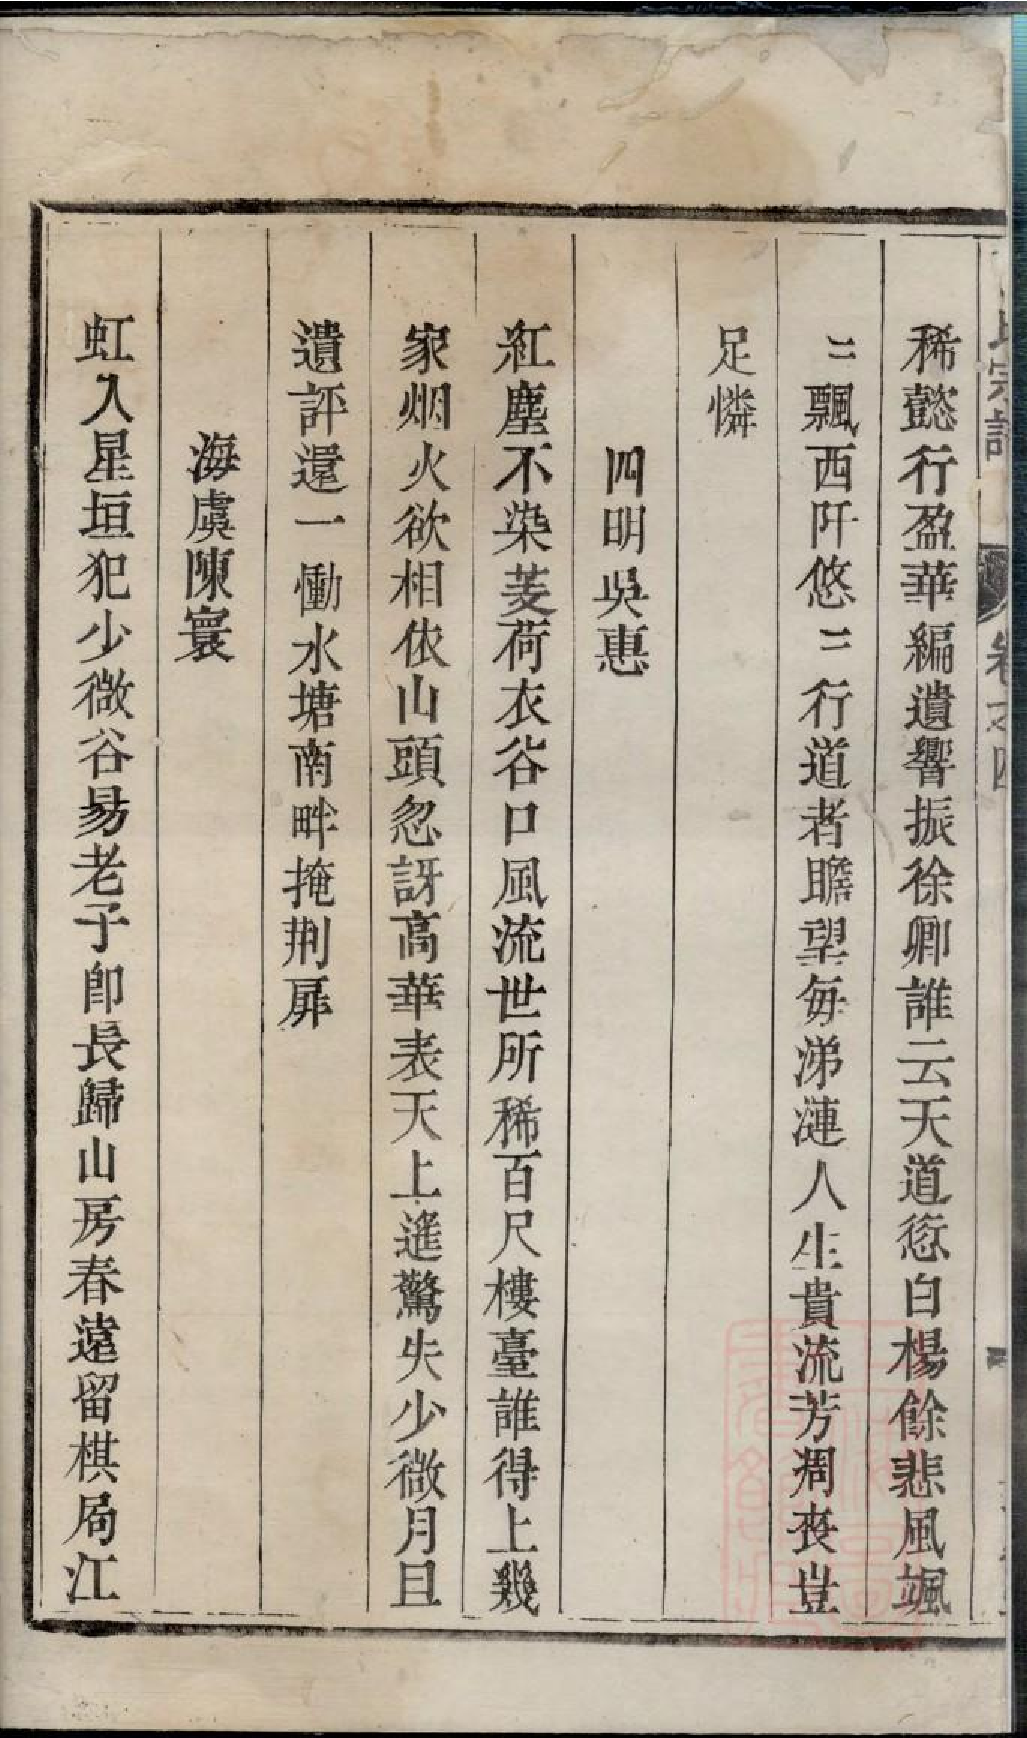 宗譜 卷之四
稀懿行盈華編遺響振徐卿誰云天道愆白楊餘悲風颯
〻飄西阡悠〻行道者瞻望每涕漣人生貴流芳凋喪豈
足憐
四明吳惠
紅塵不染芰荷衣谷口風流世所稀百尺樓臺誰得上幾
家烟火欲相依山頭忽訝高華表天上遙驚失少微月旦
遺評還一慟水塘南畔掩荆扉
海虞陳寰
虹入星垣犯少微谷昜老子卽長歸山房春遠留棋局江